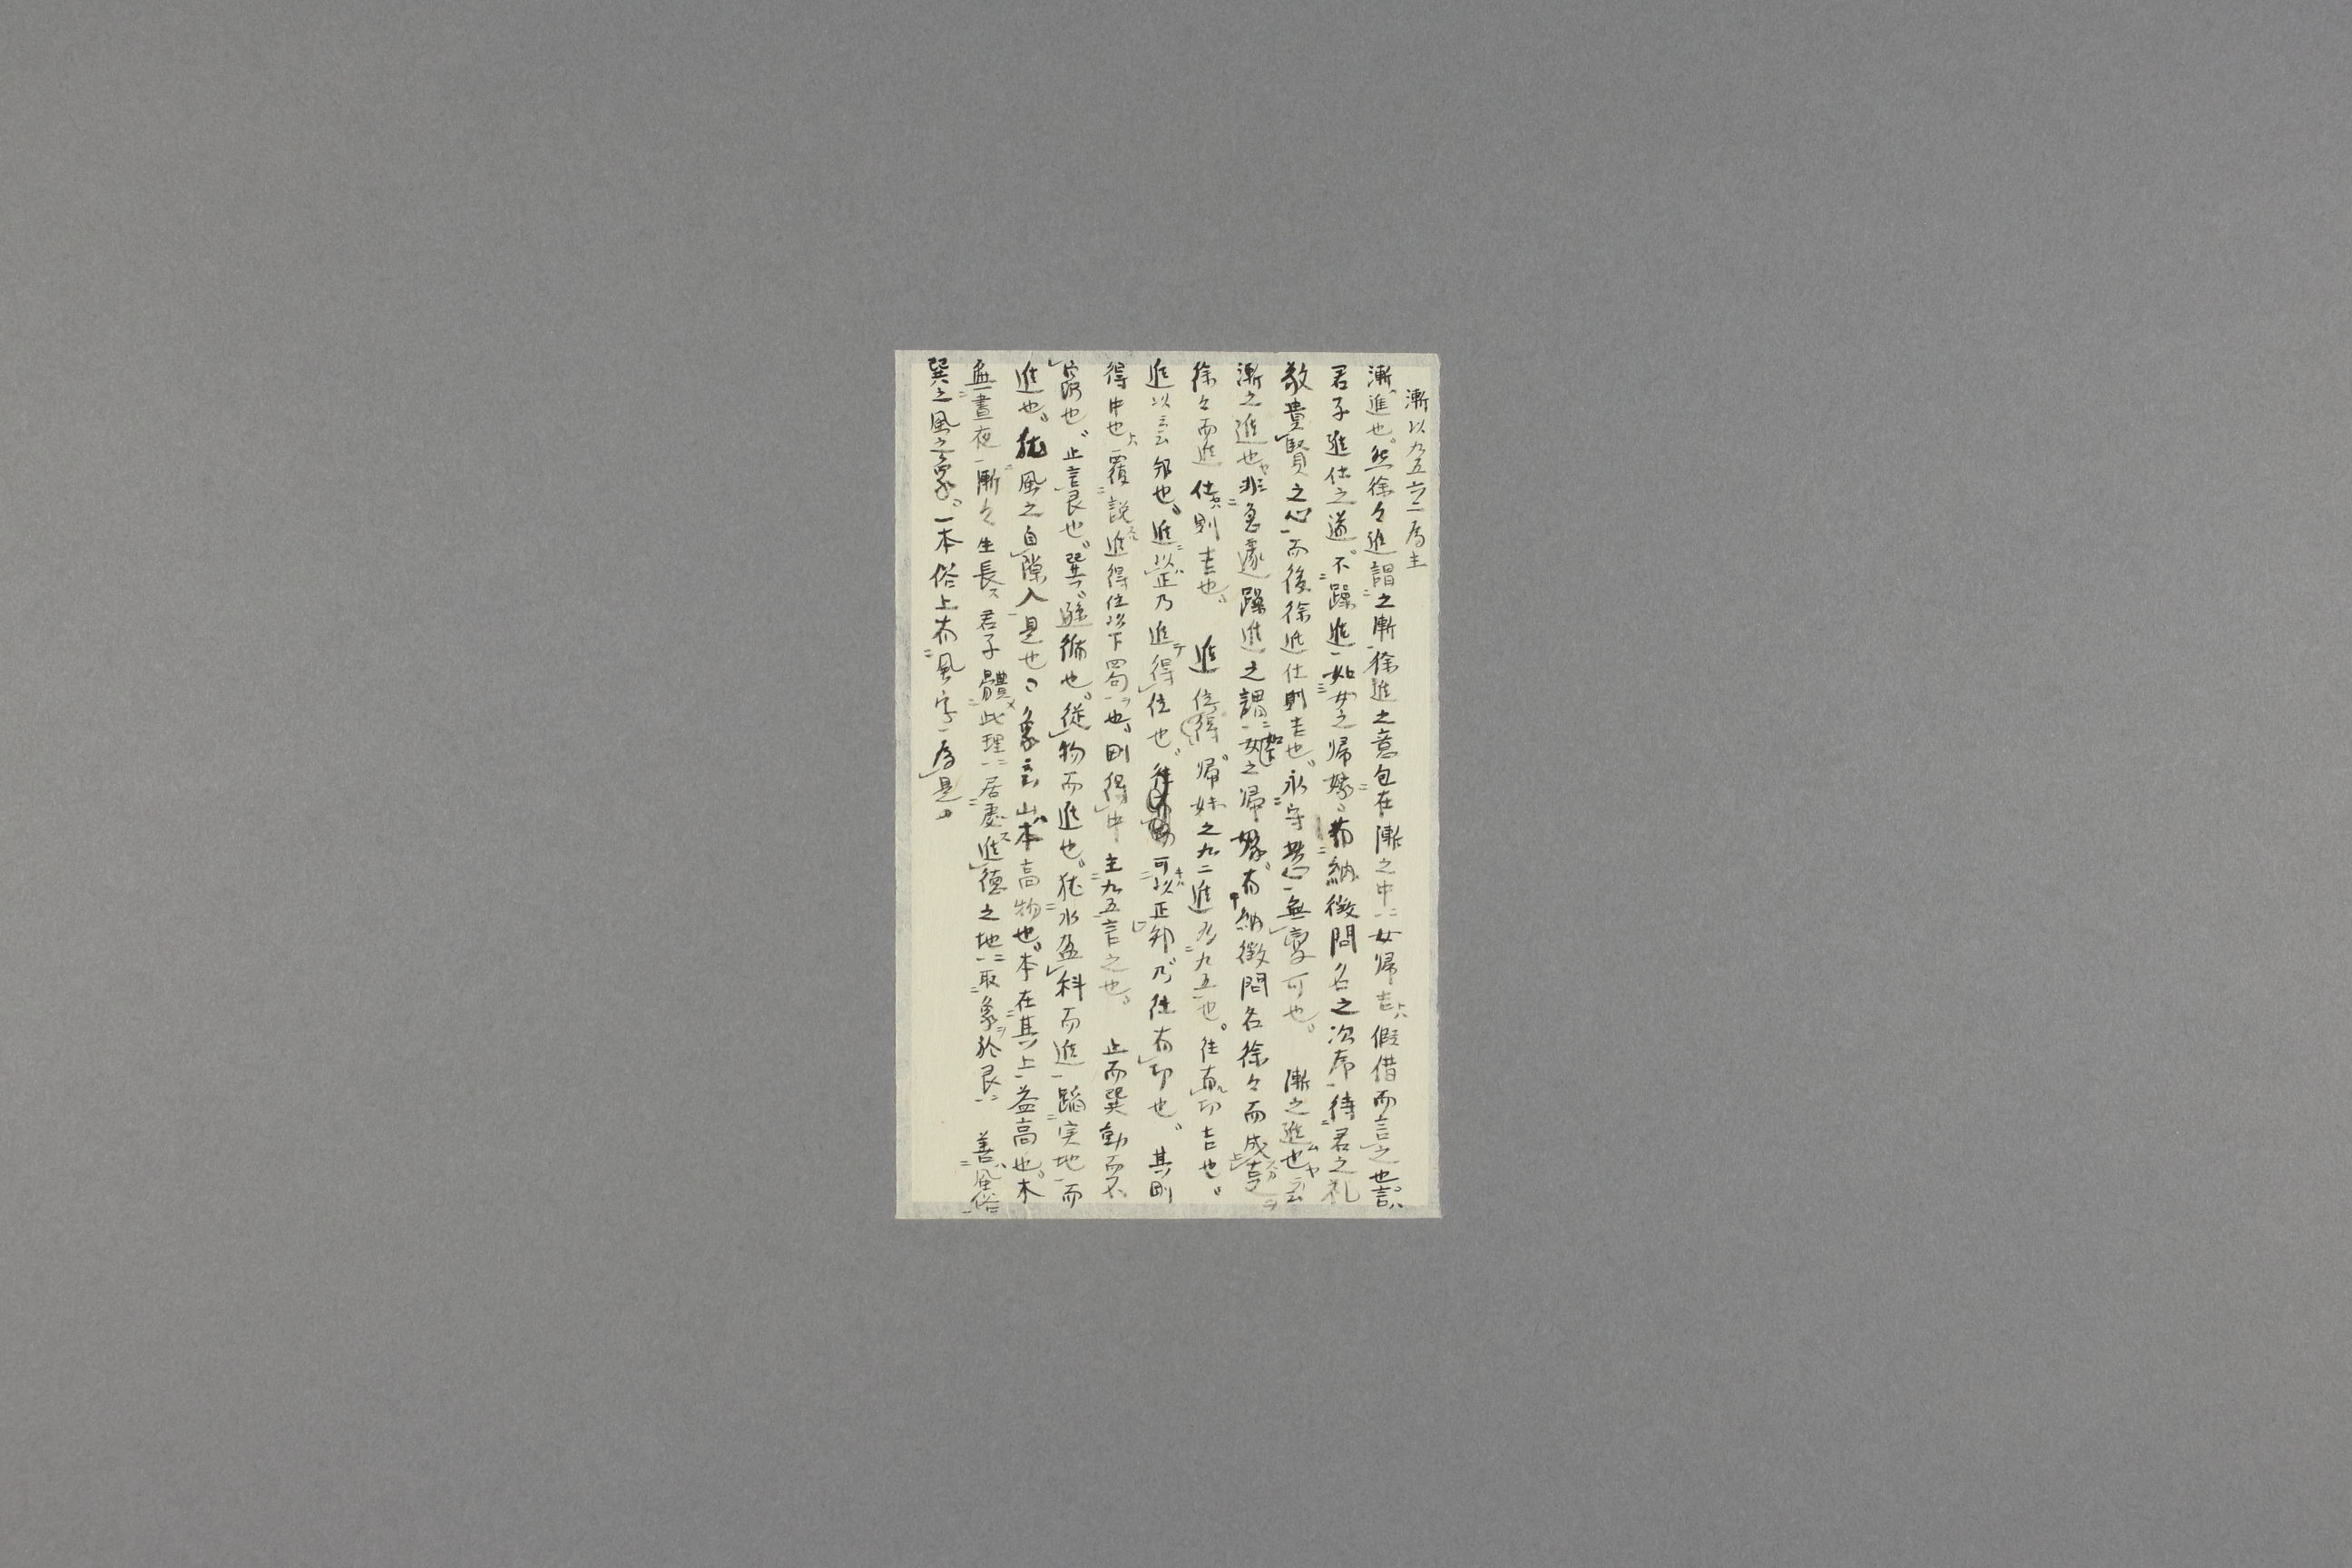 漸以九五六二為主
漸進也。然徐々進謂之漸徐進之意包在漸之中女帰吉假借而言之也。言
君子進仕之道。不躁進如女之帰嫁。有納徴問名之次序待君之礼
敬貴賢之心而後徐進仕則吉也。永守無変可也。漸之進也云
漸之進也非急遽躁進之謂女之帰嫁。有納徴問名徐々而成
徐々而進仕則吉也。進位得。帰妹之九二進為九五也。往有功吉也。
進以云云邦也。進以正乃進得位也。可以正邦乃往有功也。其剛
得中也覆説進得位以下四句也。剛得中主九五言之也。止而巽動而不
窮也。止言艮也。巽。也。従物而進也。猶水盈科而進蹈実地而
進也。猶風之自隙入是也。象言山本高物也。木在其上益高也。木
無晝夜漸々生長君子體此理居處進徳之地取象於艮善風俗
巽之風之象。一本俗上有風字為是